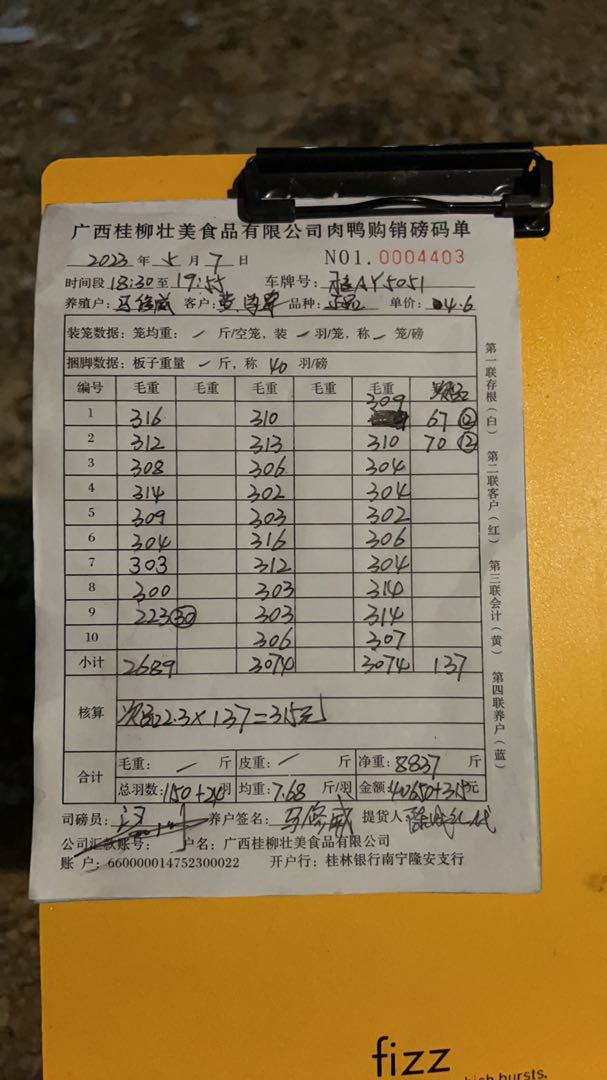 广西桂柳壮美食品有限公司肉鸭购销磅码单
2023 年 5 月 7 日 NO1.0004403
时间段 18:30 至 19:55 车牌号: 桂AY5051
养殖户: 马俊威 客户: 黄 品种: 单价: 4.6
装笼数据: 笼均重: / 斤/空笼, 装 / 羽/笼, 称 / 笼/磅
捆脚数据: 板子重量 / 斤, 称 40 羽/磅
编号 毛重 毛重 毛重 毛重 毛重
1 316 310 309 67 ⑫
2 312 313 310 70 ⑫
3 308 306 304
4 314 302 304
5 309 303 302
6 304 316 306
7 303 312 304
8 300 303 314
9 223 ㉚ 303 314
10 306 307
小计 2689 3074 3074 137
核算 次品2.3×137=315元
合计 毛重: / 斤 皮重: / 斤 净重: 8837 斤
总羽数: 1150+24 羽 均重: 7.68 斤/羽 金额: 40650+315元
司磅员: 养户签名: 马俊威 提货人
公司汇款账号: 户名: 广西桂柳壮美食品有限公司
账 户: 660000014752300022 开户行: 桂林银行南宁隆安支行
第一联存根(白) 第二联客户(红) 第三联会计(黄) 第四联养户(蓝)
fizz
bursts.